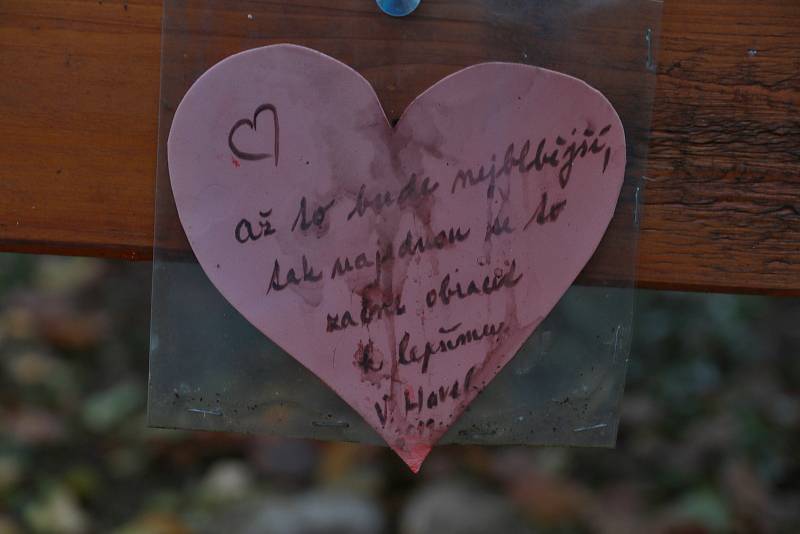 až to bude nejblbější,
tak najednou se to
začne obracet
k lepšímu.
V. Havel